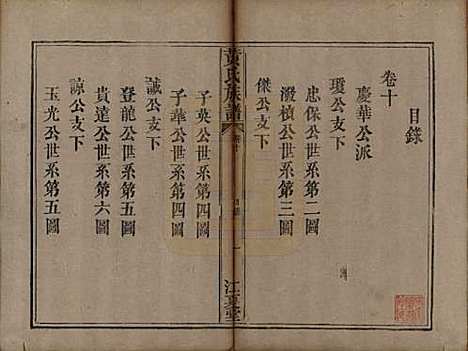 目錄
卷十
慶華公派
瓊公支下
忠保公世系第二圖
潑橫公世系第三圖
傑公支下
黃氏族譜
卷十
目錄
一
江夏堂
子英公世系第四圖
子華公世系第四圖
誠公支下
登龍公世系第五圖
貴達公世系第六圖
諒公支下
玉光公世系第五圖